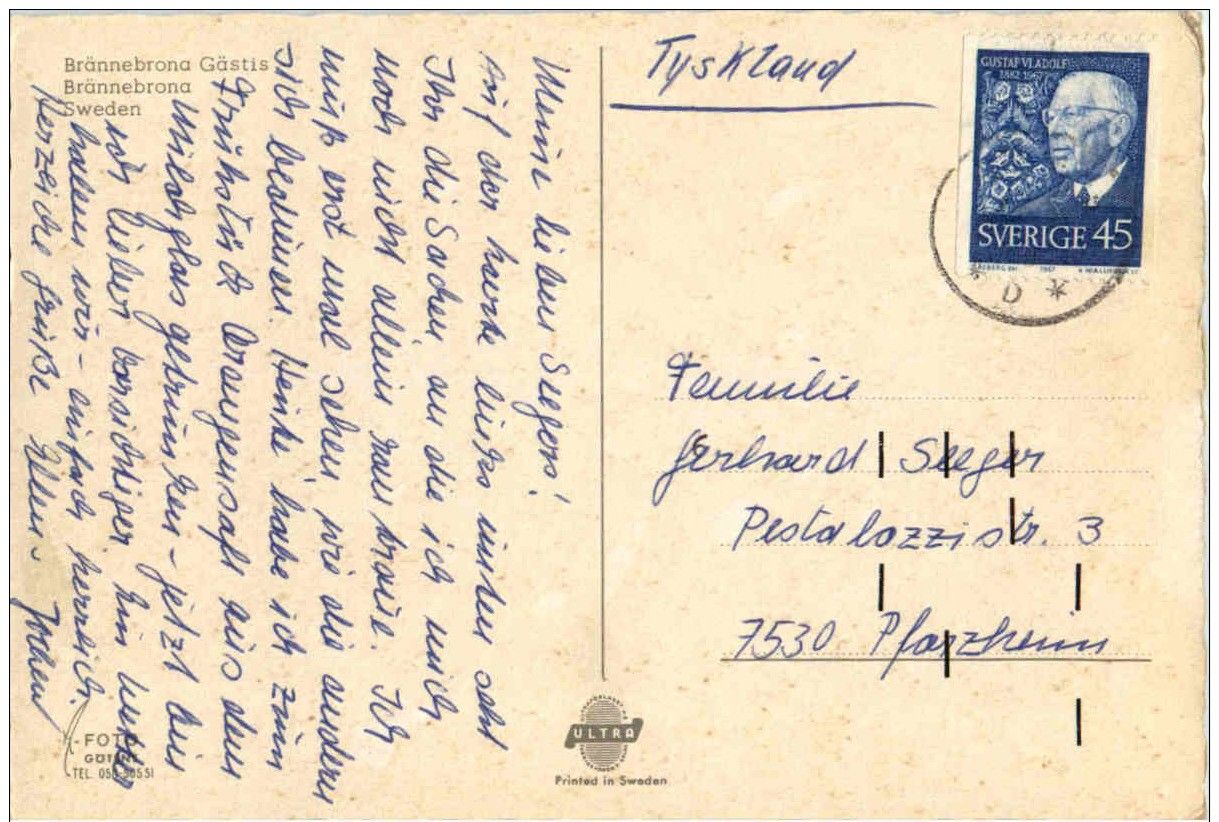 Brännebrona Gästis
Brännebrona
Sweden
Meine lieben Seegers!
Auf der Karte links unten seht
Ihr die Sachen an die ich mich
noch nicht allein ran traue. Ich
muß erst mal sehen wie die anderen
sich bedienen. Heute habe ich zum
Frühstück Orangensaft aus dem
Milchglas getrunken - jetzt bin
ich lieber vorsichtiger. Ein
haben wir - einfach herrlich.
Herzliche Grüße Jochen
FOTO
TEL. 050-30551
ULTRA
Printed in Sweden
Tyskland
GUSTAF VI ADOLF
1882 1967
SVERIGE 45
1967
D *
Familie
Gerhard Seeger
Pestalozzistr. 3
7530 Pforzheim